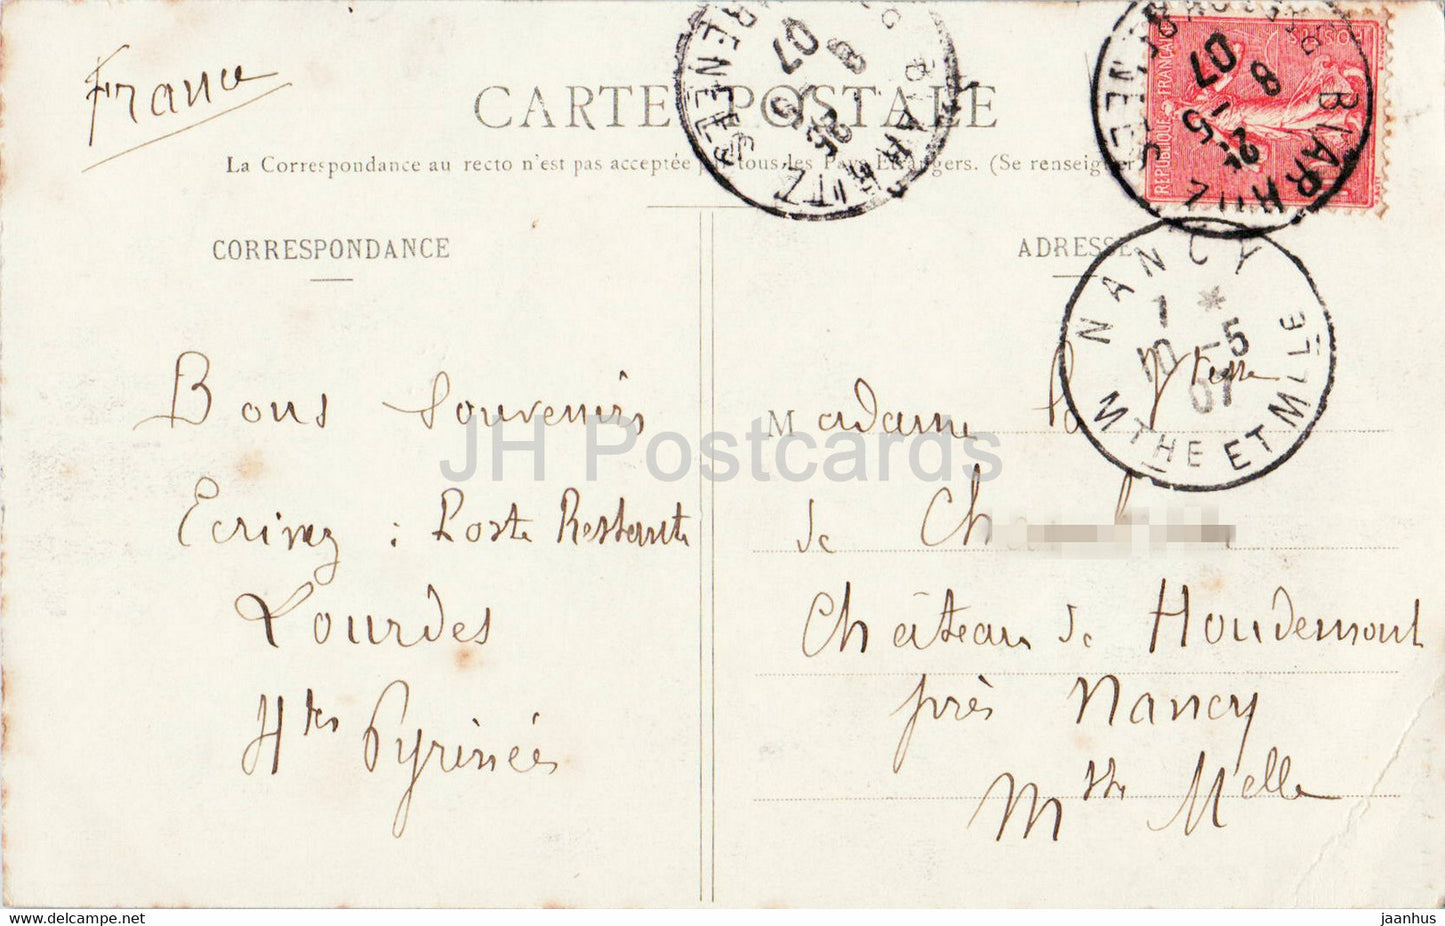 France
CARTE POSTALE
La Correspondance au recto n'est pas acceptée par tous les Pays Etrangers. (Se renseigner
CORRESPONDANCE
ADRESSE
BIARRITZ
8 25-5 07
BIARRITZ
8 25-5 07
REPUBLIQUE FRANÇAISE
POSTES
NANCY
1 * 10 -5 07
MTHE ET MLLE
Bons Souvenirs
Ecrivez : Poste Restante
Lourdes
Htes Pyrénées
Madame la Vtesse
de Ch
Château de Houdemont
près Nancy
Mthe Melle
JH Postcards
delcampe.net
jaanhus